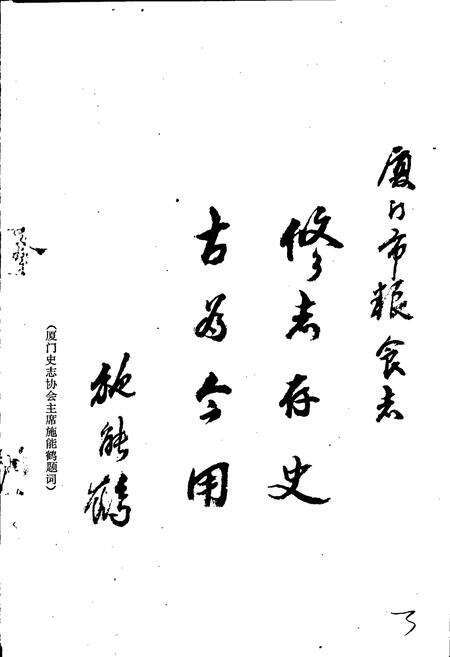 厦门市粮食志
修志存史
古为今用
施能鹤
（厦门史志协会主席施能鹤题词）